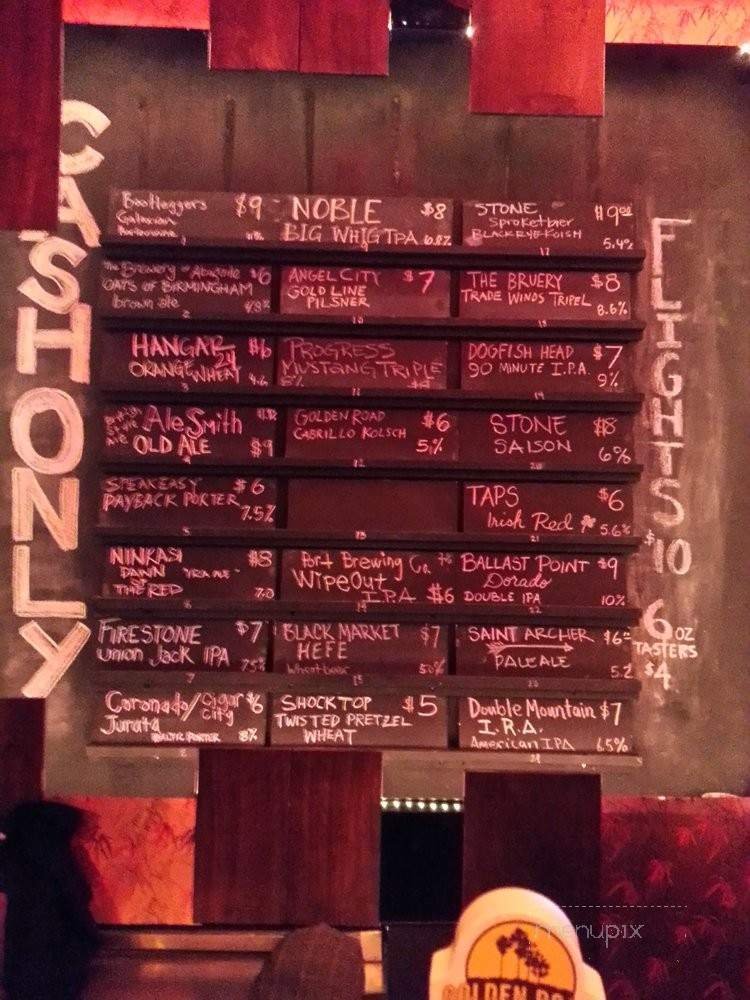 CASH ONLY
Bootleggers $9
Galaxian
NOBLE $8
BIG WHIG IPA 6.8%
STONE $9.00
Sproketbier
BLACK RYE KOLSH
5.4%
The Brewery at Abigaile $6
OATS OF BIRMINGHAM
brown ale
2
ANGEL CITY $7
GOLD LINE
PILSNER
10
THE BRUERY $8
TRADE WINDS TRIPEL
8.6%
HANGAR 24 $6
ORANGE WHEAT 4.6
PROGRESS
MUSTANG TRIPLE
8%
DOGFISH HEAD $7
90 MINUTE I.P.A.
9%
AleSmith
OLD ALE $9
GOLDEN ROAD $6
CABRILLO KOLSCH
5%
STONE $8
SAISON 6%
SPEAKEASY $6
PAYBACK PORTER
7.5%
TAPS $6
Irish Red 5.6%
NINKASI $8
DAWN
OF
THE RED 7.0
Port Brewing Co.
WIPEOUT
I.P.A $6
BALLAST POINT $9
Dorado
DOUBLE IPA 10%
FIRESTONE $7
union Jack IPA 7.5%
7
BLACK MARKET $7
HEFE
Wheat beer
SAINT ARCHER $6
PALE ALE 5.2
Coronado/Cigar City $6
Juruta
BALTIC PORTER 8%
SHOCKTOP $5
TWISTED PRETZEL
WHEAT
Double Mountain $7
I.R.A.
American IPA 6.5%
FLIGHTS
$10
6 OZ
TASTERS
$4
menupix
GOLDEN